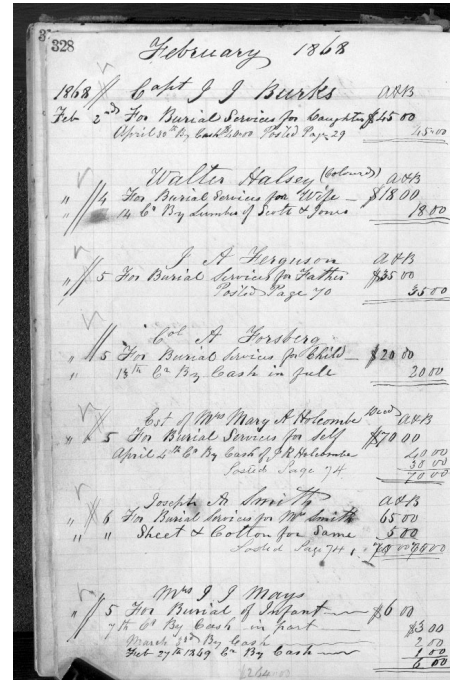 328
February 1868
1868 Capt J J Burks A&B
Feb 2nd For Burial Services for Daughter $45 00
April 30th By Cash 40.00 Posted Page 29 45.00
Walter Halsey (Coloured) A&B
" 4 For Burial Services for Wife $18 00
" 14 Cr By Lumber of Scott & Jones 18.00
J A Ferguson A&B
" 5 For Burial Services for Father $35 00
Posted Page 70 35 00
Col A Forsberg
" 5 For Burial Services for Child $20 00
" 13th Cr By Cash in full 20 00
Est of Mrs Mary A Holcombe Decd A&B
" 5 For Burial Services for Self $70 00
April 4th Cr By Cash of J R Holcombe 40 00
Posted Page 74 30 00
70 00
Joseph A Smith A&B
" 6 For Burial Services for Mr Smith 65 00
" " Sheet & Cotton for Same 5 00
Posted Page 74 70 00 70 00
Mrs J J Mays
" 5 For Burial of Infant $6 00
7th Cr By Cash in part $3 00
March 3rd By Cash 2 00
Feb 27th 1869 Cr By Cash 1 00
6 00